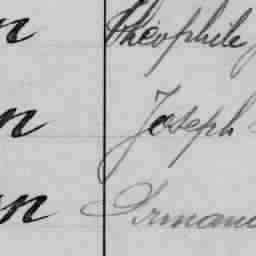 n Théophile
n Joseph
n Armand